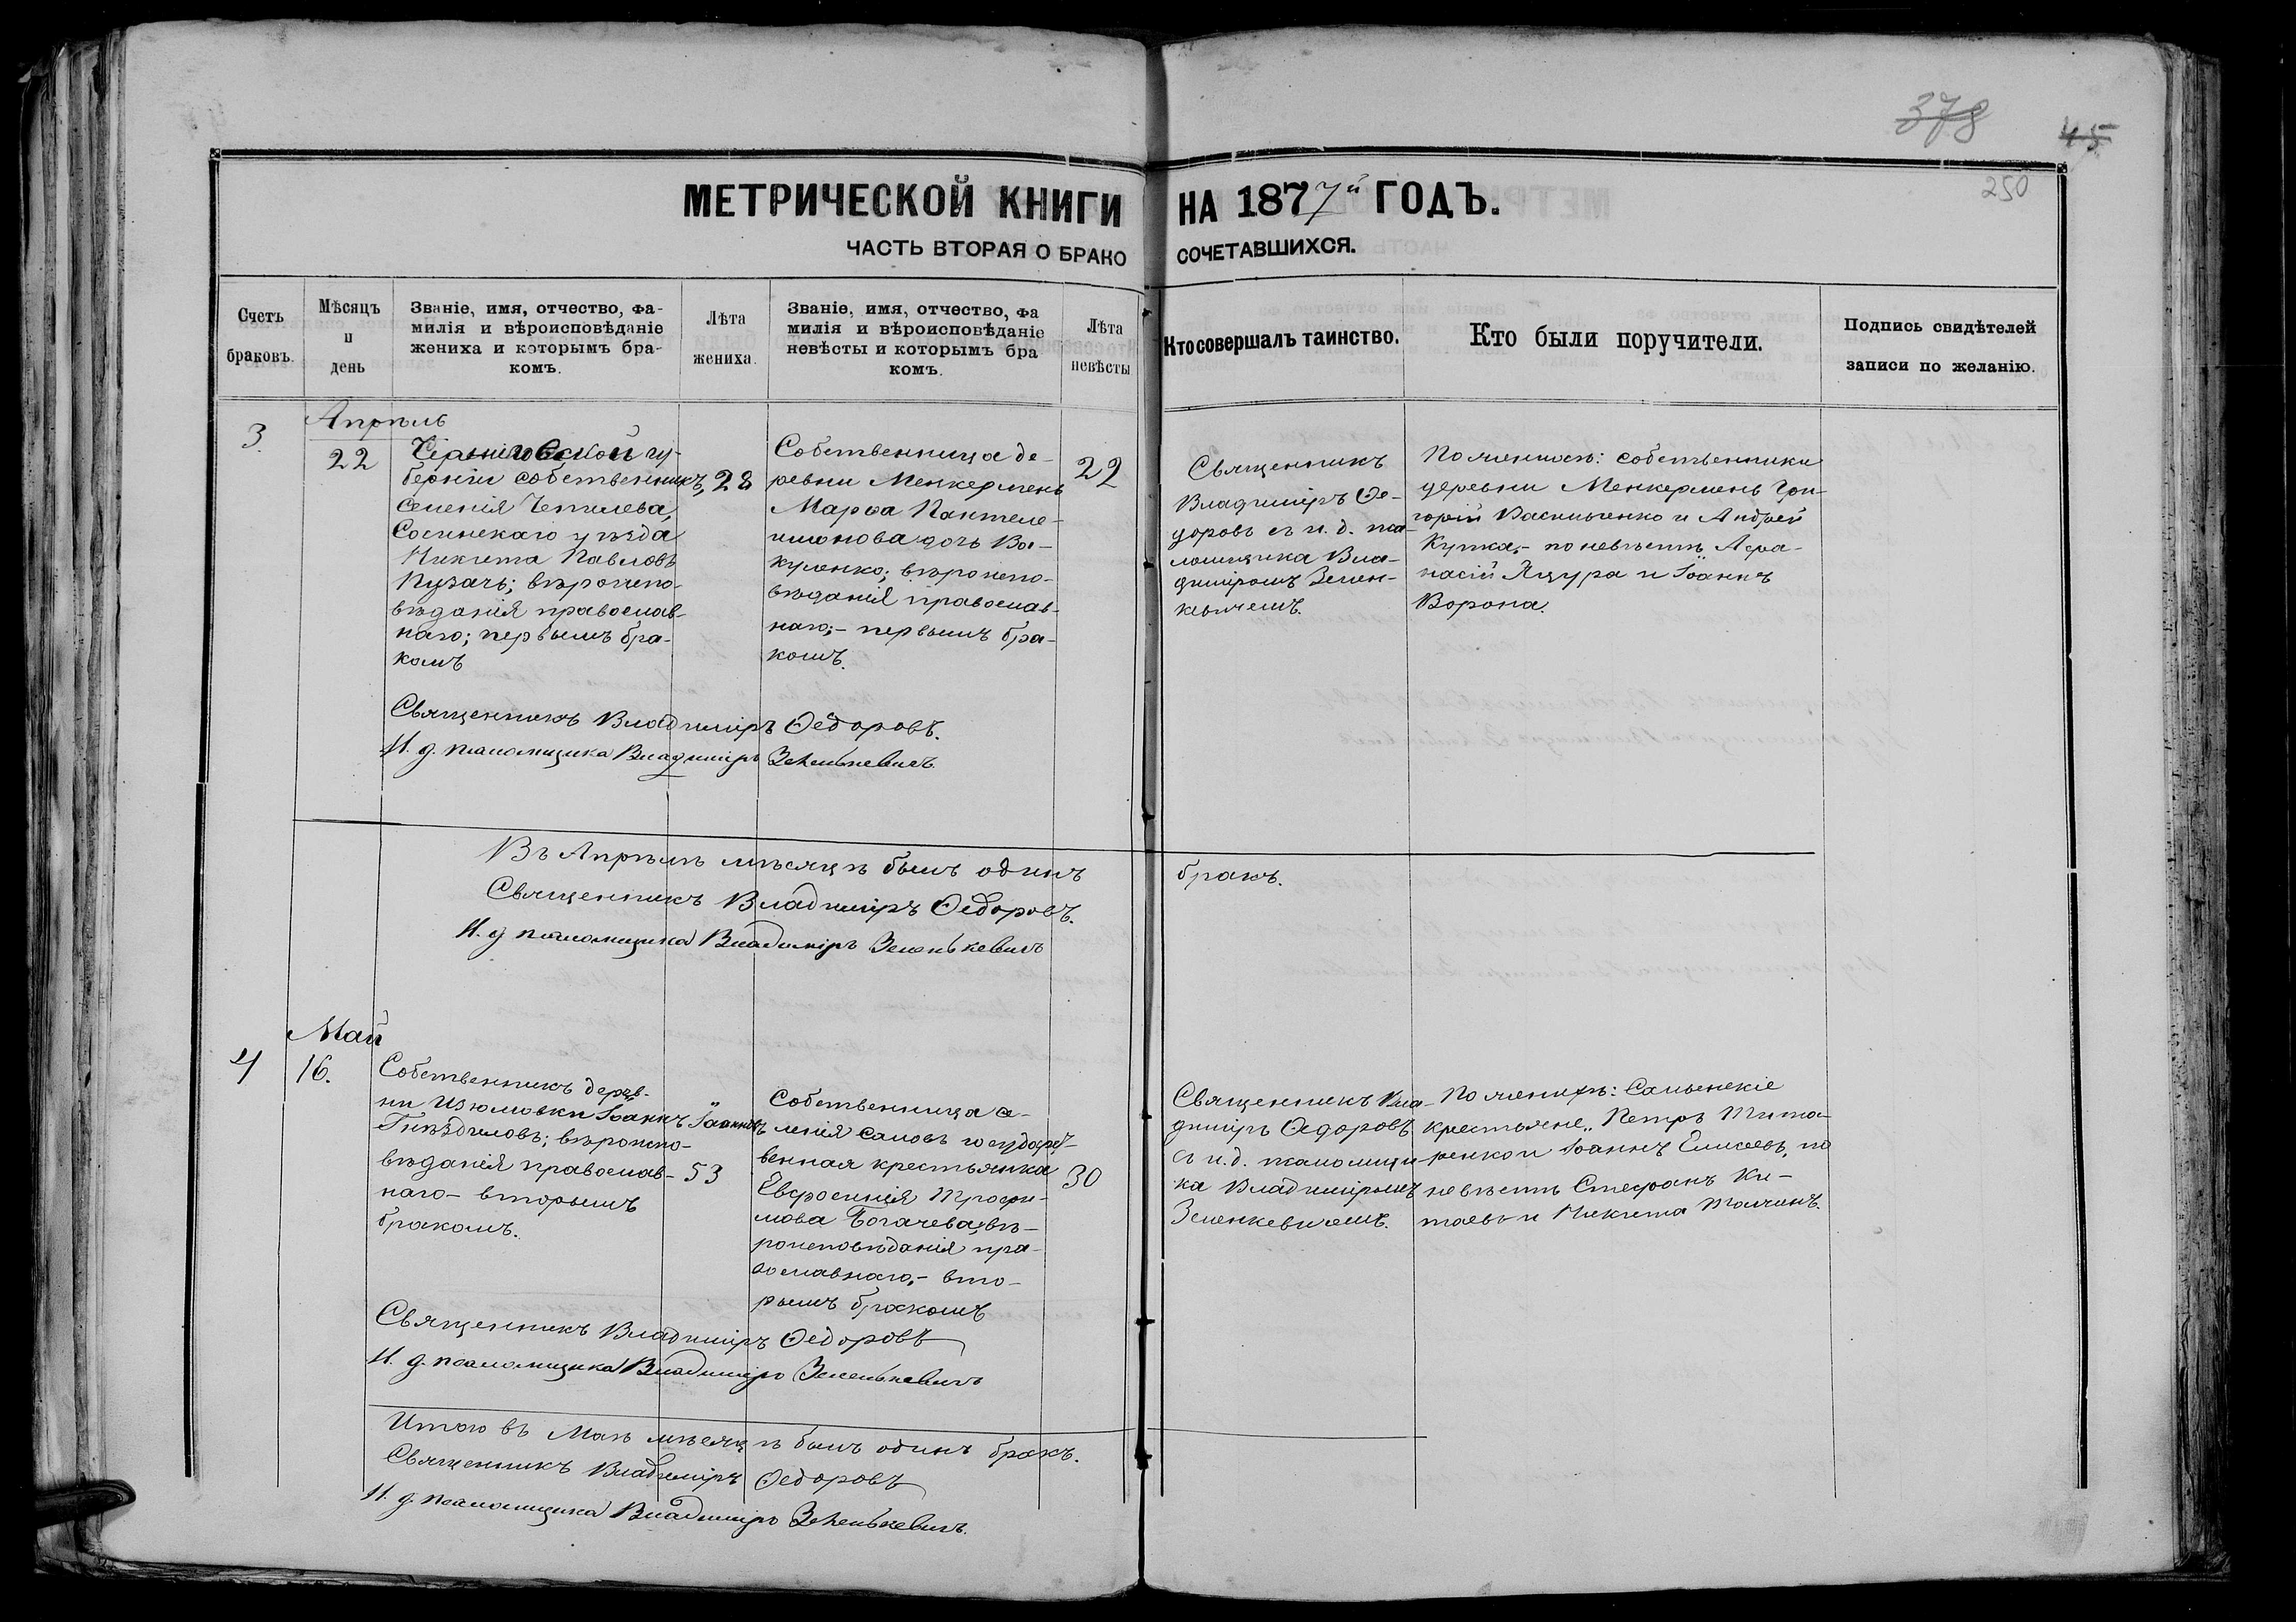 378
45
250
МЕТРИЧЕСКОЙ КНИГИ НА 1877й ГОДЪ.
ЧАСТЬ ВТОРАЯ О БРАКО СОЧЕТАВШИХСЯ.
Счетъ
браковъ.
Мѣсяцъ
и
день
Званіе, имя, отчество, фа-
милія и вѣроисповѣданіе
жениха и которымъ бра-
комъ.
Лѣта
жениха.
Званіе, имя, отчество, фа
милія и вѣроисповѣданіе
невѣсты и которымъ бра
комъ.
Лѣта
невѣсты
Кто совершалъ таинство.
Кто были поручители.
Подпись свидѣтелей
записи по желанію.
3
Апрѣль
22
Черниговской гу-
берніи собственникъ,
селенія
Сосницкаго уѣзда
Никита Павловъ
Пузачъ; вѣроиспо-
вѣданія православ-
наго; первымъ бра-
комъ
28
Собственница де-
ревни Менкермень
Марѳа Пантеле-
имонова дочь Ва-
куленко; вѣроиспо-
вѣданія православ-
наго;- первымъ бра-
комъ.
22
Священникъ
Владиміръ Ѳе-
доровъ съ и. д. пса-
ломщика Вла-
диміромъ Зелен-
кевичемъ.
По женихѣ: собственники
деревни Менкермень Гри-
горій Василченко и Андрей
Кутка,- по невѣстѣ Аѳа-
насій Яцура и Іоаннъ
Ворона.
Священникъ Владиміръ Ѳедоровъ.
И. д. псаломщика Владиміръ Зеленькевичъ.
Въ Апрѣлѣ мѣсяцѣ былъ одинъ бракъ.
Священникъ Владиміръ Ѳедоровъ.
И. д псаломщика Владиміръ Зеленькевичъ
Май
4
16.
Собственникъ дерев-
ни Изюмовки Іоаннъ Іоанновъ
Гнѣдиловъ; вѣроиспо-
вѣданія православ-
наго- вторымъ
бракомъ.
53
Собственница се-
ленія Саловъ государст-
венная крестьянка
Евфросинія Трофи-
мова Богачева, вѣ-
роисповѣданія пра-
вославнаго,- вто-
рымъ бракомъ
30
Священникъ Вла-
диміръ Ѳедоровъ
съ и. д. псаломщи-
ка Владиміромъ
Зеленкевичемъ.
По женихѣ: Сальенскіе
крестьяне,, Петръ Тита-
ренко и Іоаннъ Елисеевъ, по
невѣстѣ Стефанъ Ки-
таевъ и Никита Толчинъ.
Священникъ Владиміръ Ѳедоровъ
И. д. псаломщика Владиміръ Зеленькевичъ
Итого въ Маѣ мѣсяцѣ былъ одинъ бракъ.
Священникъ Владиміръ Ѳедоровъ
И. д. псаломщика Владиміръ Зеленькевичъ.